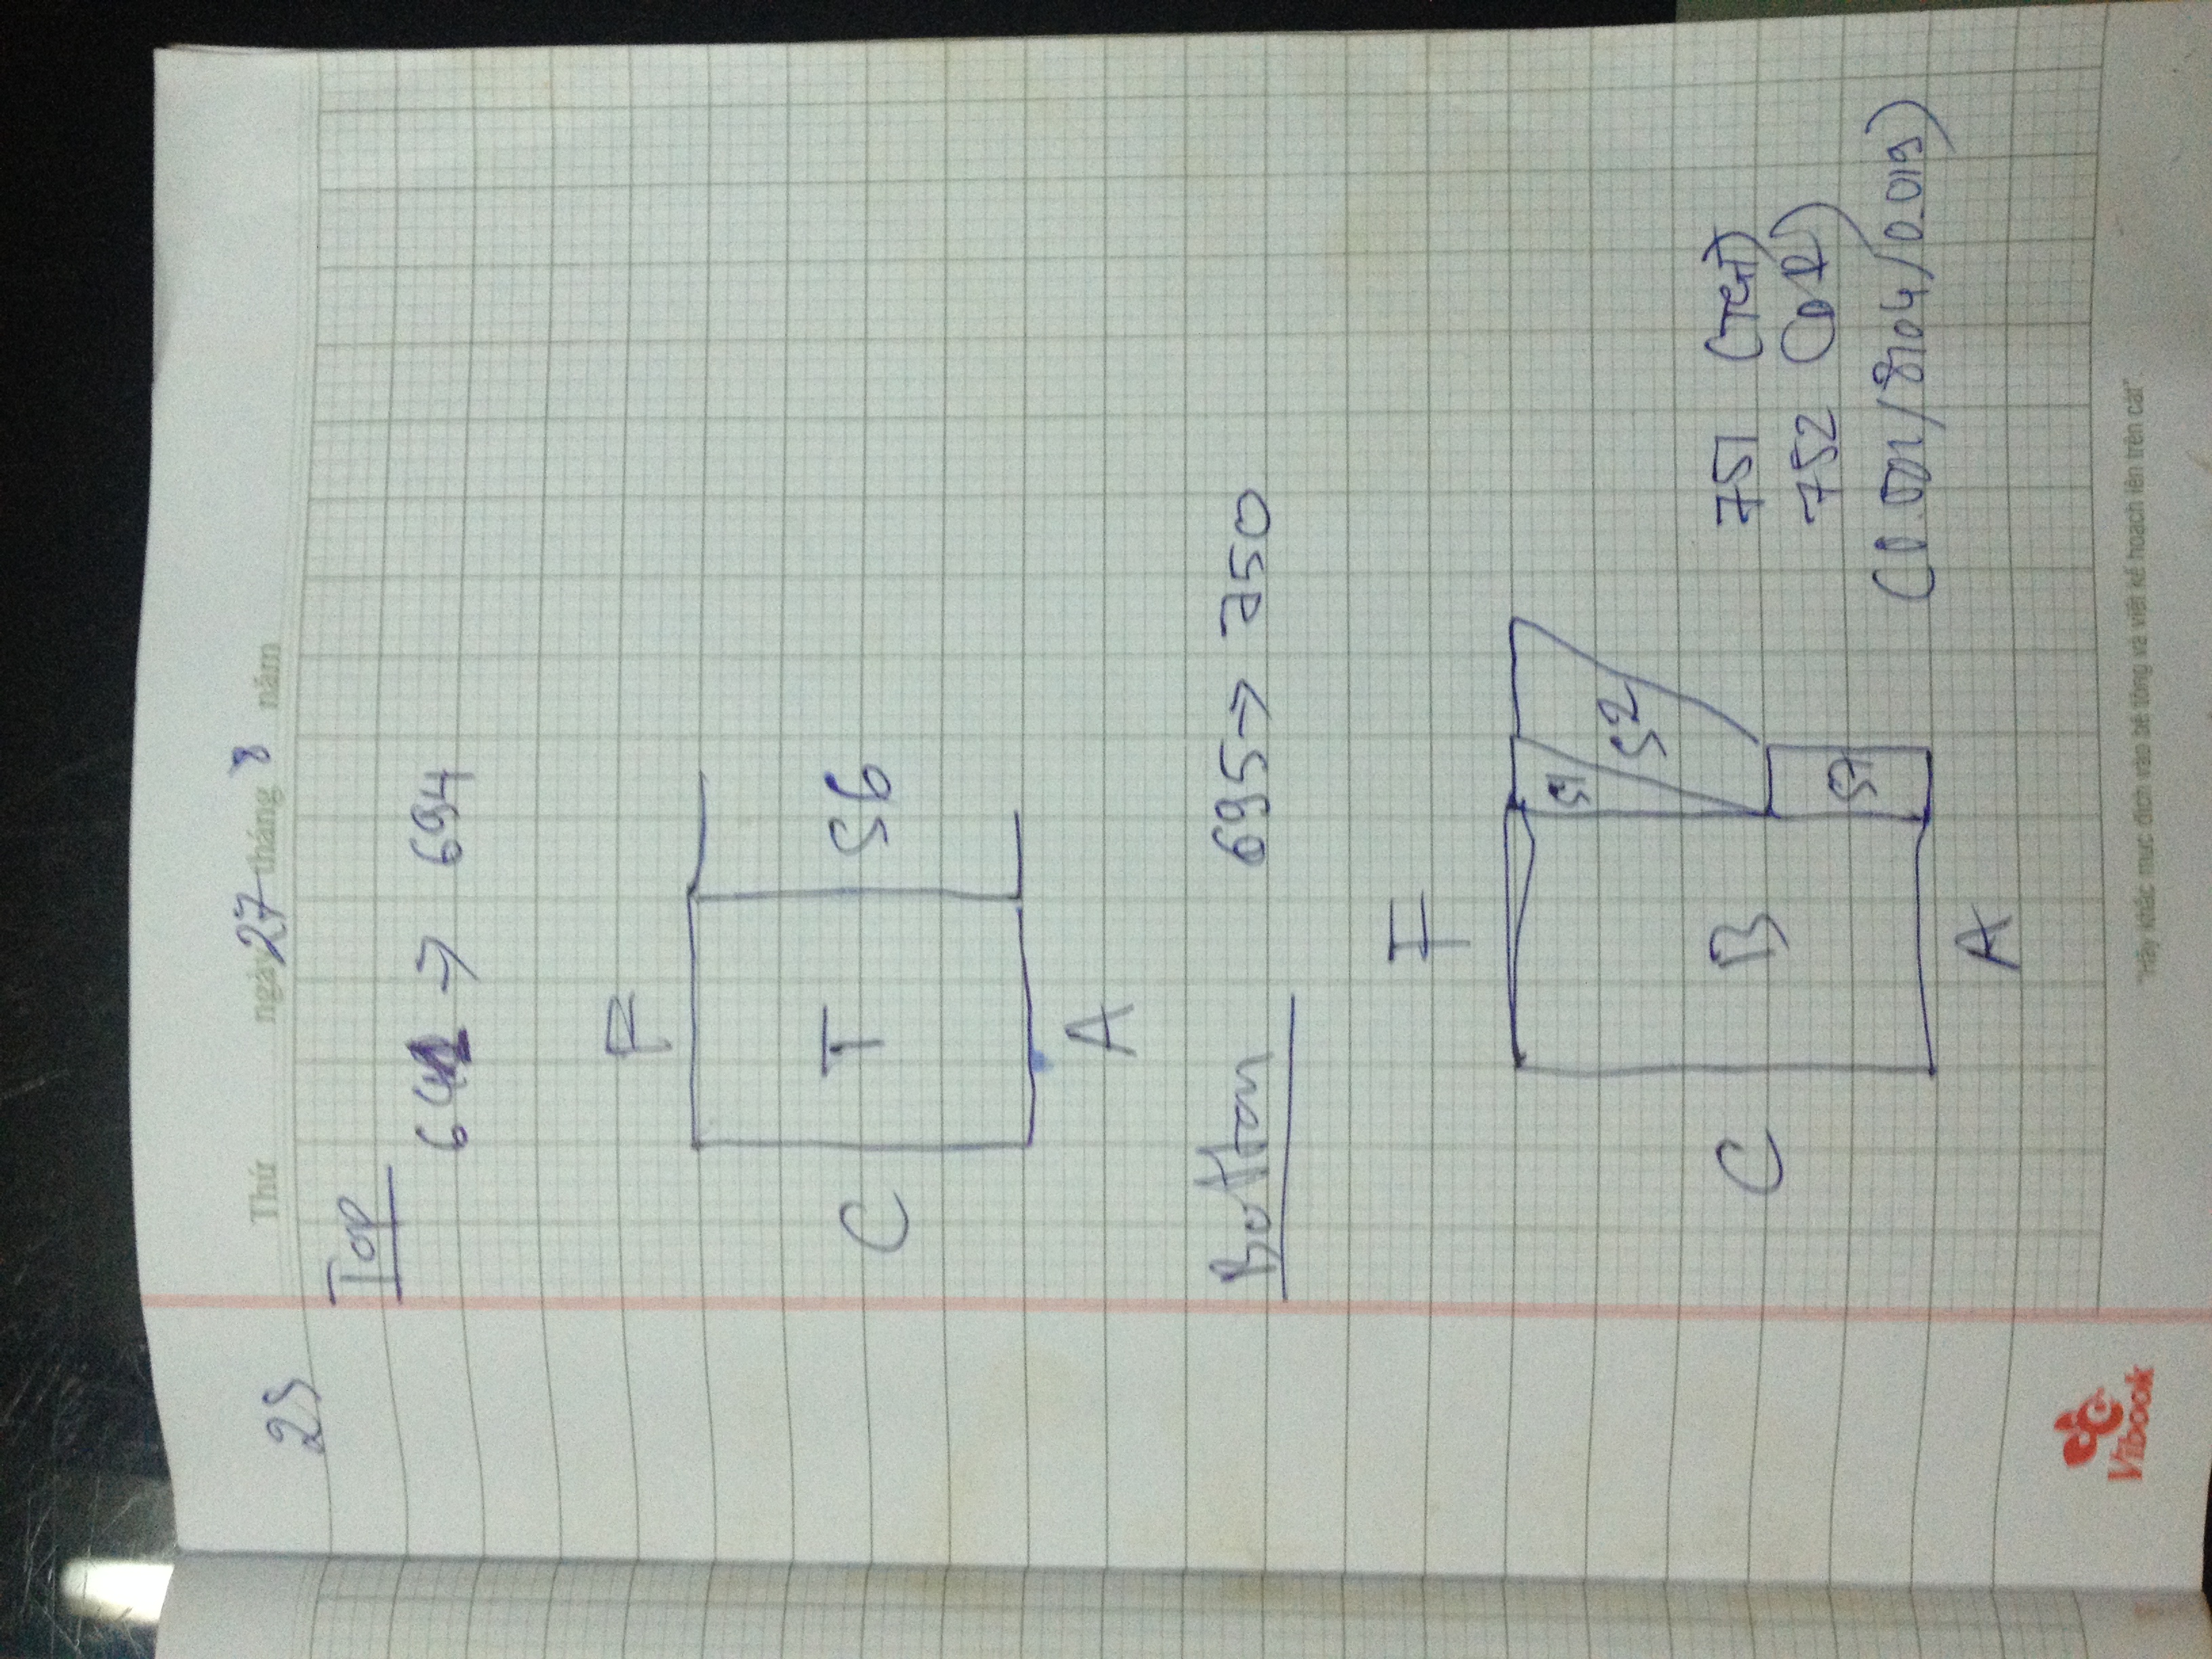 Thứ ngày 27 tháng 8 năm
25
Top
641 → 694
F
C T S6
A
Botton 695 → 750
F
S1
S2
C B
751 (TGT)
752 (DR)
S7
(0.001/8104/0.019)
A
Vibook
"Hãy khắc mục đích vào bê tông và viết kế hoạch lên trên cát".